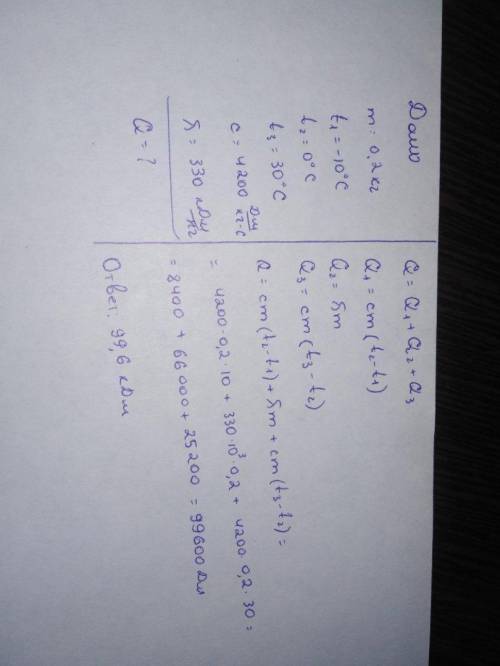 Дано
m = 0,2 кг
t₁ = -10°C
t₂ = 0°C
t₃ = 30°C
c = 4200 Дж/кг·С
λ = 330 кДж/кг
Q = ?
Q = Q₁ + Q₂ + Q₃
Q₁ = cm (t₂ - t₁)
Q₂ = λm
Q₃ = cm (t₃ - t₂)
Q = cm (t₂ - t₁) + λm + cm (t₃ - t₂) =
= 4200 · 0,2 · 10 + 330 · 10³ · 0,2 + 4200 · 0,2 · 30 =
= 8400 + 66000 + 25200 = 99600 Дж
Ответ: 99,6 кДж